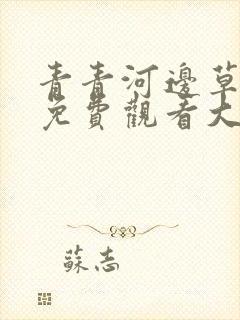 青青河邊草
免費觀看大
蘇志